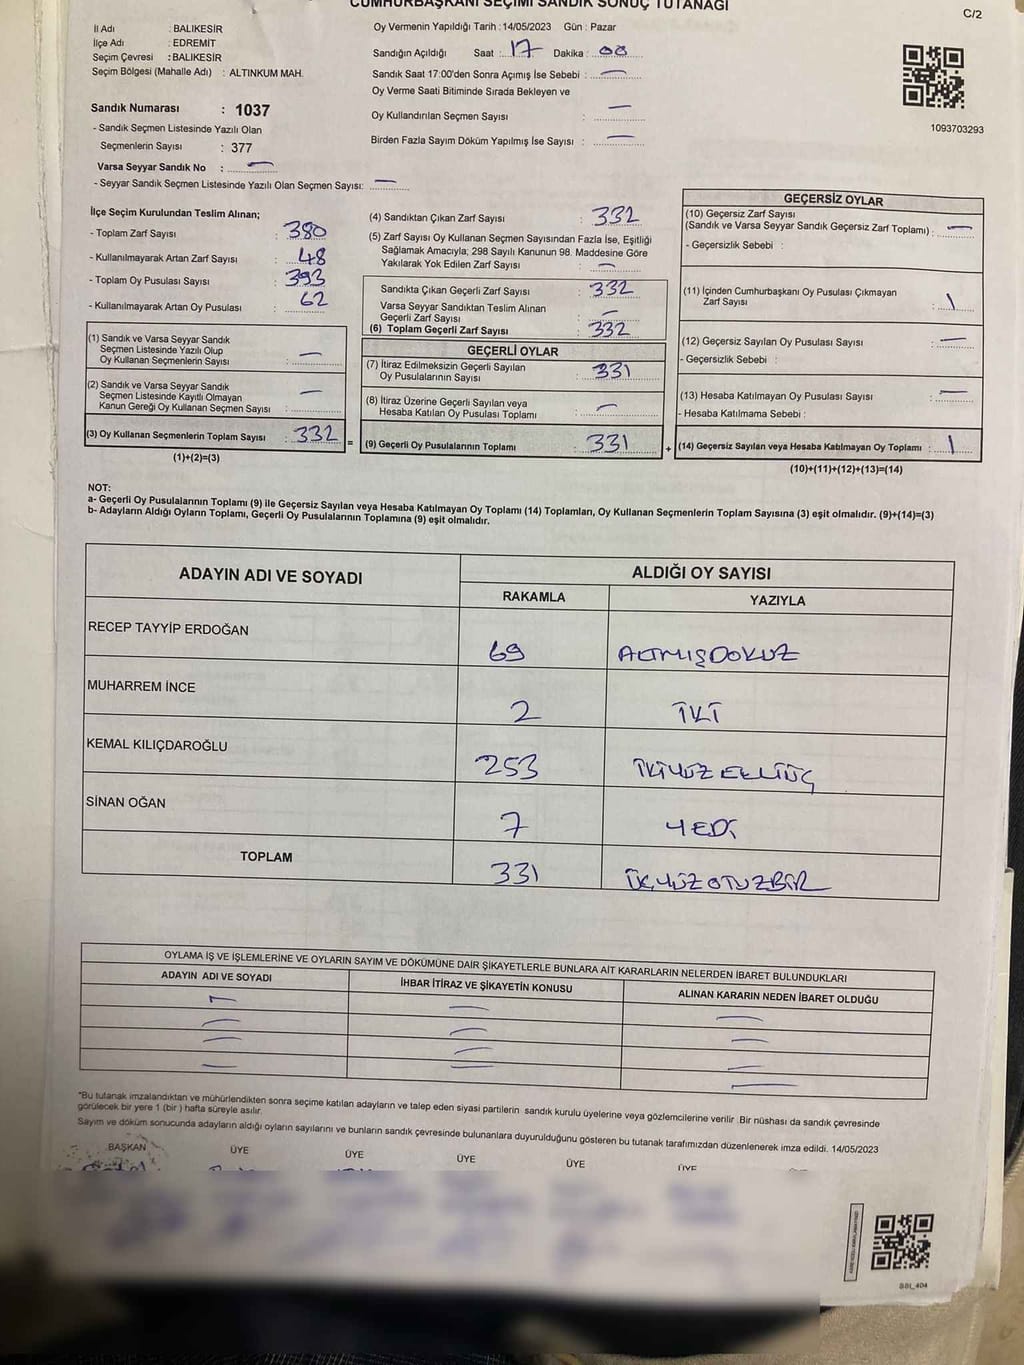 CUMHURBAŞKANI SEÇİMİ SANDIK SONUÇ TUTANAĞI
C/2
İl Adı : BALIKESİR
İlçe Adı : EDREMİT
Seçim Çevresi : BALIKESİR
Seçim Bölgesi (Mahalle Adı) : ALTINKUM MAH.
Oy Vermenin Yapıldığı Tarih : 14/05/2023 Gün : Pazar
Sandığın Açıldığı Saat : 17 Dakika : 00
Sandık Saat 17:00'den Sonra Açımış İse Sebebi : —
Oy Verme Saati Bitiminde Sırada Bekleyen ve
Oy Kullandırılan Seçmen Sayısı : —
Birden Fazla Sayım Döküm Yapılmış İse Sayısı : —
1093703293
Sandık Numarası : 1037
- Sandık Seçmen Listesinde Yazılı Olan
Seçmenlerin Sayısı : 377
Varsa Seyyar Sandık No : —
- Seyyar Sandık Seçmen Listesinde Yazılı Olan Seçmen Sayısı: —
İlçe Seçim Kurulundan Teslim Alınan;
- Toplam Zarf Sayısı : 380
- Kullanılmayarak Artan Zarf Sayısı : 48
- Toplam Oy Pusulası Sayısı : 393
- Kullanılmayarak Artan Oy Pusulası : 62
(1) Sandık ve Varsa Seyyar Sandık
Seçmen Listesinde Yazılı Olup
Oy Kullanan Seçmenlerin Sayısı : —
(2) Sandık ve Varsa Seyyar Sandık
Seçmen Listesinde Kayıtlı Olmayan
Kanun Gereği Oy Kullanan Seçmen Sayısı : —
(3) Oy Kullanan Seçmenlerin Toplam Sayısı : 332 =
(1)+(2)=(3)
(4) Sandıktan Çıkan Zarf Sayısı : 332
(5) Zarf Sayısı Oy Kullanan Seçmen Sayısından Fazla İse, Eşitliği
Sağlamak Amacıyla; 298 Sayılı Kanunun 98. Maddesine Göre
Yakılarak Yok Edilen Zarf Sayısı : —
Sandıkta Çıkan Geçerli Zarf Sayısı : 332
Varsa Seyyar Sandıktan Teslim Alınan
Geçerli Zarf Sayısı : —
(6) Toplam Geçerli Zarf Sayısı : 332
GEÇERLİ OYLAR
(7) İtiraz Edilmeksizin Geçerli Sayılan
Oy Pusulalarının Sayısı : 331
(8) İtiraz Üzerine Geçerli Sayılan veya
Hesaba Katılan Oy Pusulası Toplamı : —
(9) Geçerli Oy Pusulalarının Toplamı : 331 +
GEÇERSİZ OYLAR
(10) Geçersiz Zarf Sayısı
(Sandık ve Varsa Seyyar Sandık Geçersiz Zarf Toplamı) : —
- Geçersizlik Sebebi :
(11) İçinden Cumhurbaşkanı Oy Pusulası Çıkmayan
Zarf Sayısı : 1
(12) Geçersiz Sayılan Oy Pusulası Sayısı : —
- Geçersizlik Sebebi :
(13) Hesaba Katılmayan Oy Pusulası Sayısı : —
- Hesaba Katılmama Sebebi :
(14) Geçersiz Sayılan veya Hesaba Katılmayan Oy Toplamı : 1
(10)+(11)+(12)+(13)=(14)
NOT:
a- Geçerli Oy Pusulalarının Toplamı (9) ile Geçersiz Sayılan veya Hesaba Katılmayan Oy Toplamı (14) Toplamları, Oy Kullanan Seçmenlerin Toplam Sayısına (3) eşit olmalıdır. (9)+(14)=(3)
b- Adayların Aldığı Oyların Toplamı, Geçerli Oy Pusulalarının Toplamına (9) eşit olmalıdır.
ADAYIN ADI VE SOYADI
ALDIĞI OY SAYISI
RAKAMLA YAZIYLA
RECEP TAYYİP ERDOĞAN 69 ALTMIŞDOKUZ
MUHARREM İNCE 2 İKİ
KEMAL KILIÇDAROĞLU 253 İKİYÜZELLİÜÇ
SİNAN OĞAN 7 YEDİ
TOPLAM 331 ÜÇYÜZOTUZBİR
OYLAMA İŞ VE İŞLEMLERİNE VE OYLARIN SAYIM VE DÖKÜMÜNE DAİR ŞİKAYETLERLE BUNLARA AİT KARARLARIN NELERDEN İBARET BULUNDUKLARI
ADAYIN ADI VE SOYADI İHBAR İTİRAZ VE ŞİKAYETİN KONUSU ALINAN KARARIN NEDEN İBARET OLDUĞU
*Bu tutanak imzalandıktan ve mühürlendikten sonra seçime katılan adayların ve talep eden siyasi partilerin sandık kurulu üyelerine veya gözlemcilerine verilir .Bir nüshası da sandık çevresinde
görülecek bir yere 1 (bir ) hafta süreyle asılır.
Sayım ve döküm sonucunda adayların aldığı oyların sayılarını ve bunların sandık çevresinde bulunanlara duyurulduğunu gösteren bu tutanak tarafımızdan düzenlenerek imza edildi. 14/05/2023
BAŞKAN ÜYE ÜYE ÜYE ÜYE ÜYE
SSI_404